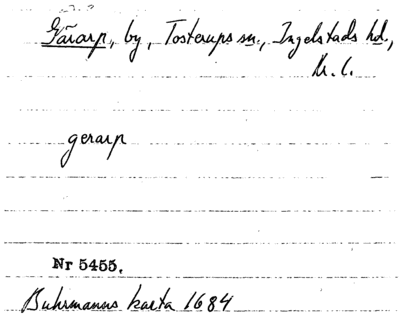 Gärarp, by, Tosterups sn., Ingelstads hd.,
M. l.
gerarp
Nr 5455.
Buhrmanns karta 1684